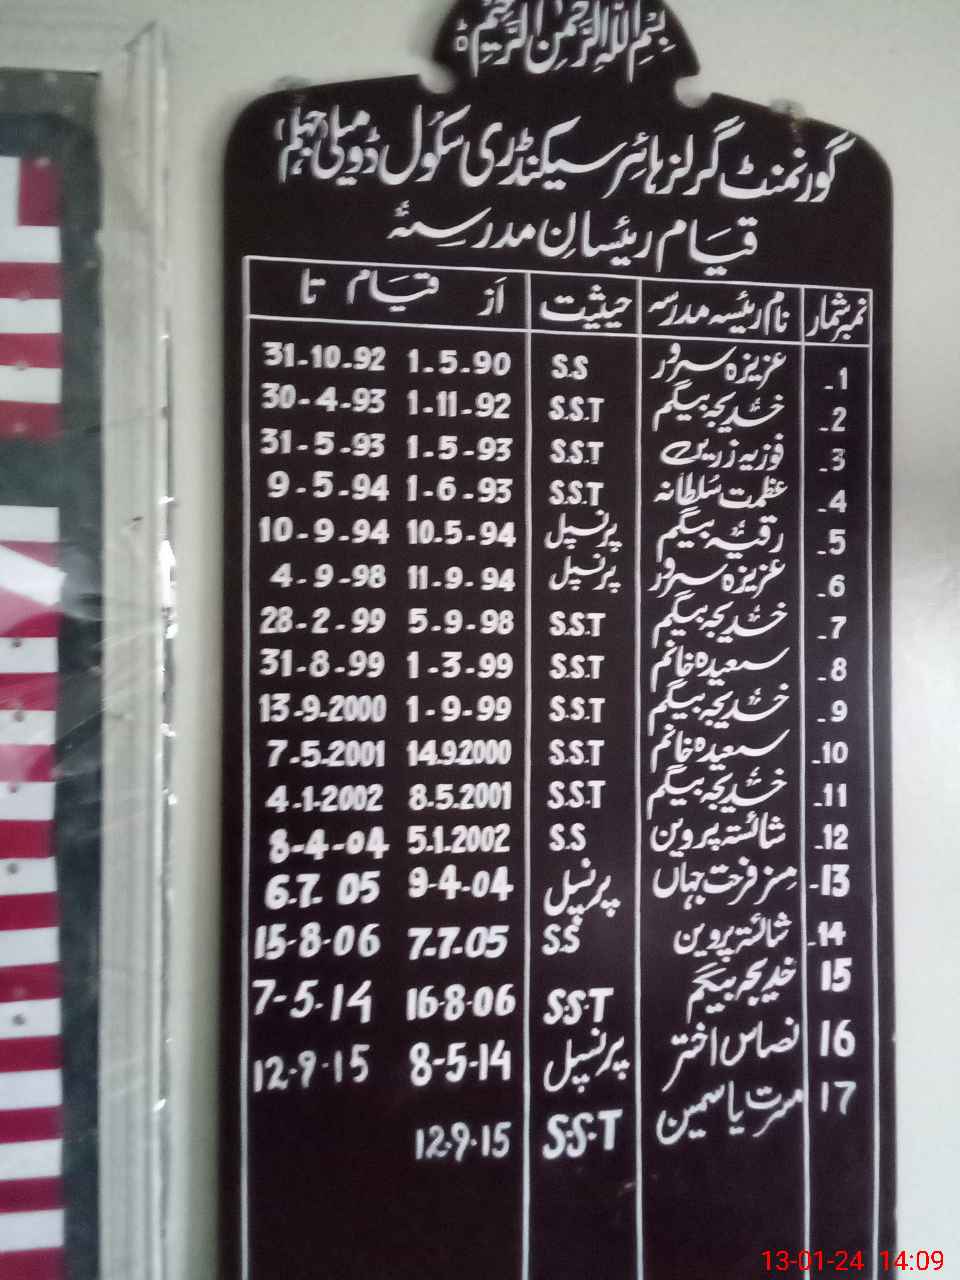 بِسْمِ اللهِ الرَّحْمٰنِ الرَّحِيْمِ ط
گورنمنٹ گرلز ہائر سیکنڈری سکول ڈومیلی (جہلم)
قیام رئیسانِ مدرسہ
نمبر شمار نام رئیسہ مدرسہ حیثیت از قیام تا
1- عزیزہ سرور S.S 1.5.90 31.10.92
2- خدیجہ بیگم S.S.T 1-11-92 30-4-93
3- فوزیہ زریں S.S.T 1.5.93 31-5-93
4- عظمت سلطانہ S.S.T 1-6-93 9-5-94
5- رقیہ بیگم پرنسپل 10.5-94 10-9-94
6- عزیزہ سرور پرنسپل 11-9-94 4-9-98
7- خدیجہ بیگم S.S.T 5-9-98 28-2-99
8- سعیدہ خانم S.S.T 1-3-99 31-8-99
9- خدیجہ بیگم S.S.T 1-9-99 13-9-2000
10- سعیدہ خانم S.S.T 14.9.2000 7-5-2001
11- خدیجہ بیگم S.S.T 8.5.2001 4-1-2002
12- شائستہ پروین S.S 5.1.2002 8-4-04
13- مسز فرحت جہاں پرنسپل 9-4-04 6.7.05
14- شائستہ پروین S.S 7.7.05 15-8-06
15 خدیجہ بیگم S.S.T 16-8-06 7-5-14
16 اختر پرنسپل 8-5-14 12-9-15
17 مسرت یاسمین S.S.T 12.9.15
13-01-24 14:09